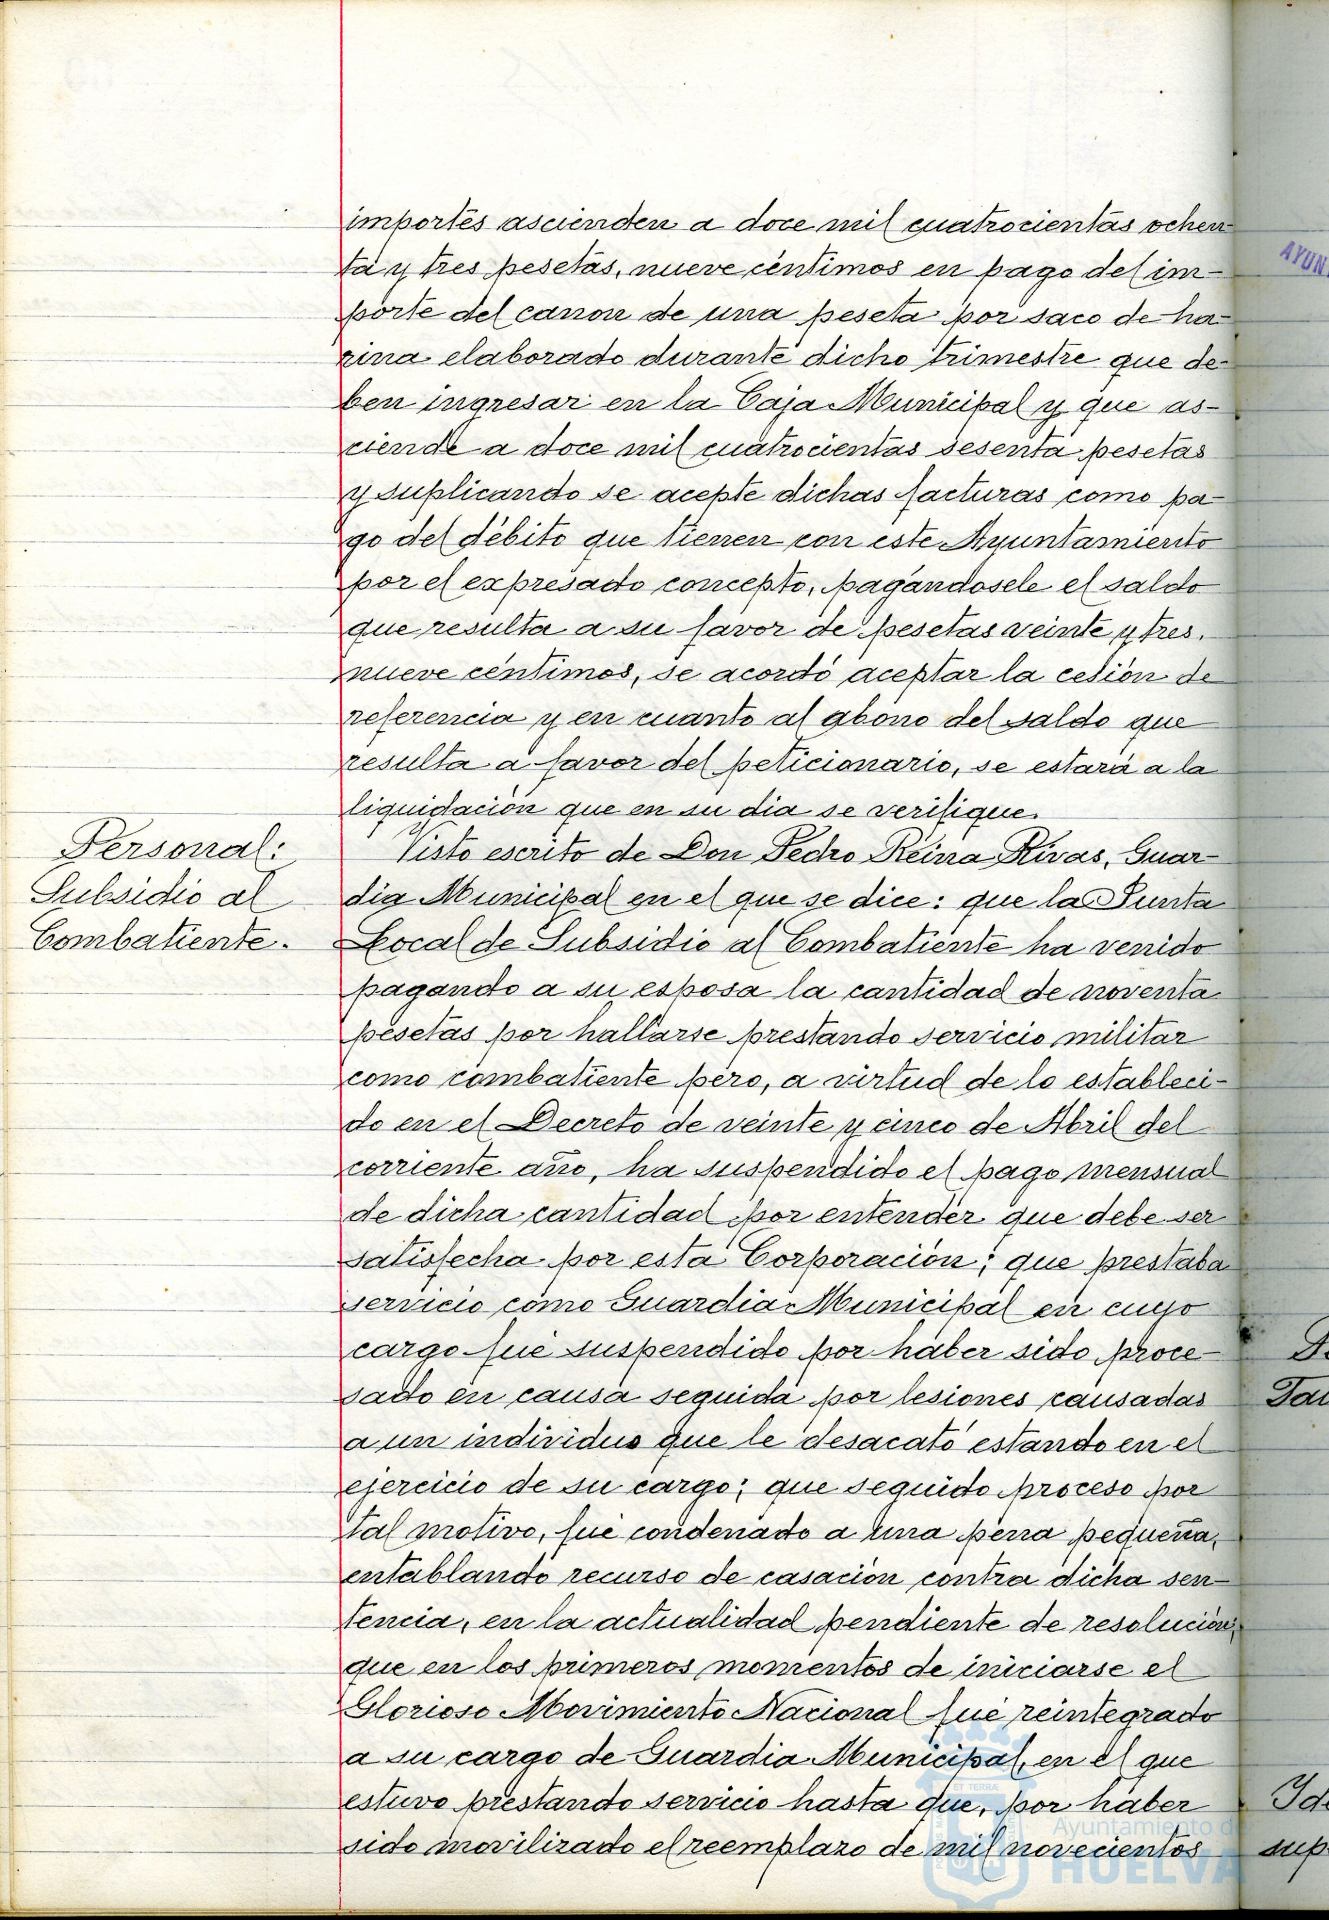 importes ascienden a doce mil cuatrocientas ochen-
ta y tres pesetas, nueve céntimos en pago del im-
porte del canon de una peseta por saco de ha-
rina elaborado durante dicho trimestre que de-
ben ingresar en la Caja Municipal y que as-
ciende a doce mil cuatrocientas sesenta pesetas
y suplicando se acepte dichas facturas como pa-
go del débito que tienen con este Ayuntamiento
por el expresado concepto, pagándosele el saldo
que resulta a su favor de pesetas veinte y tres,
nueve céntimos, se acordó aceptar la cesión de
referencia y en cuanto al abono del saldo que
resulta a favor del peticionario, se estará a la
liquidación que en su dia se verifique.
Personal:
Subsidio al
Combatiente.
Visto escrito de Don Pedro Reina Rivas, Guar-
dia Municipal en el que se dice: que la Junta
Local de Subsidio al Combatiente ha venido
pagando a su esposa la cantidad de noventa
pesetas por hallarse prestando servicio militar
como combatiente pero, a virtud de lo estableci-
do en el Decreto de veinte y cinco de Abril del
corriente año, ha suspendido el pago mensual
de dicha cantidad por entender que debe ser
satisfecha por esta Corporación; que prestaba
servicio como Guardia Municipal en cuyo
cargo fué suspendido por haber sido proce-
sado en causa seguida por lesiones causadas
a un individuo que le desacató estando en el
ejercicio de su cargo; que seguido proceso por
tal motivo, fué condenado a una pena pequeña,
entablando recurso de casación contra dicha sen-
tencia, en la actualidad pendiente de resolución;
que en los primeros momentos de iniciarse el
Glorioso Movimiento Nacional fué reintegrado
a su cargo de Guardia Municipal, en el que
estuvo prestando servicio hasta que, por haber
sido movilizado el reemplazo de mil novecientos
Ayuntamiento de
HUELVA